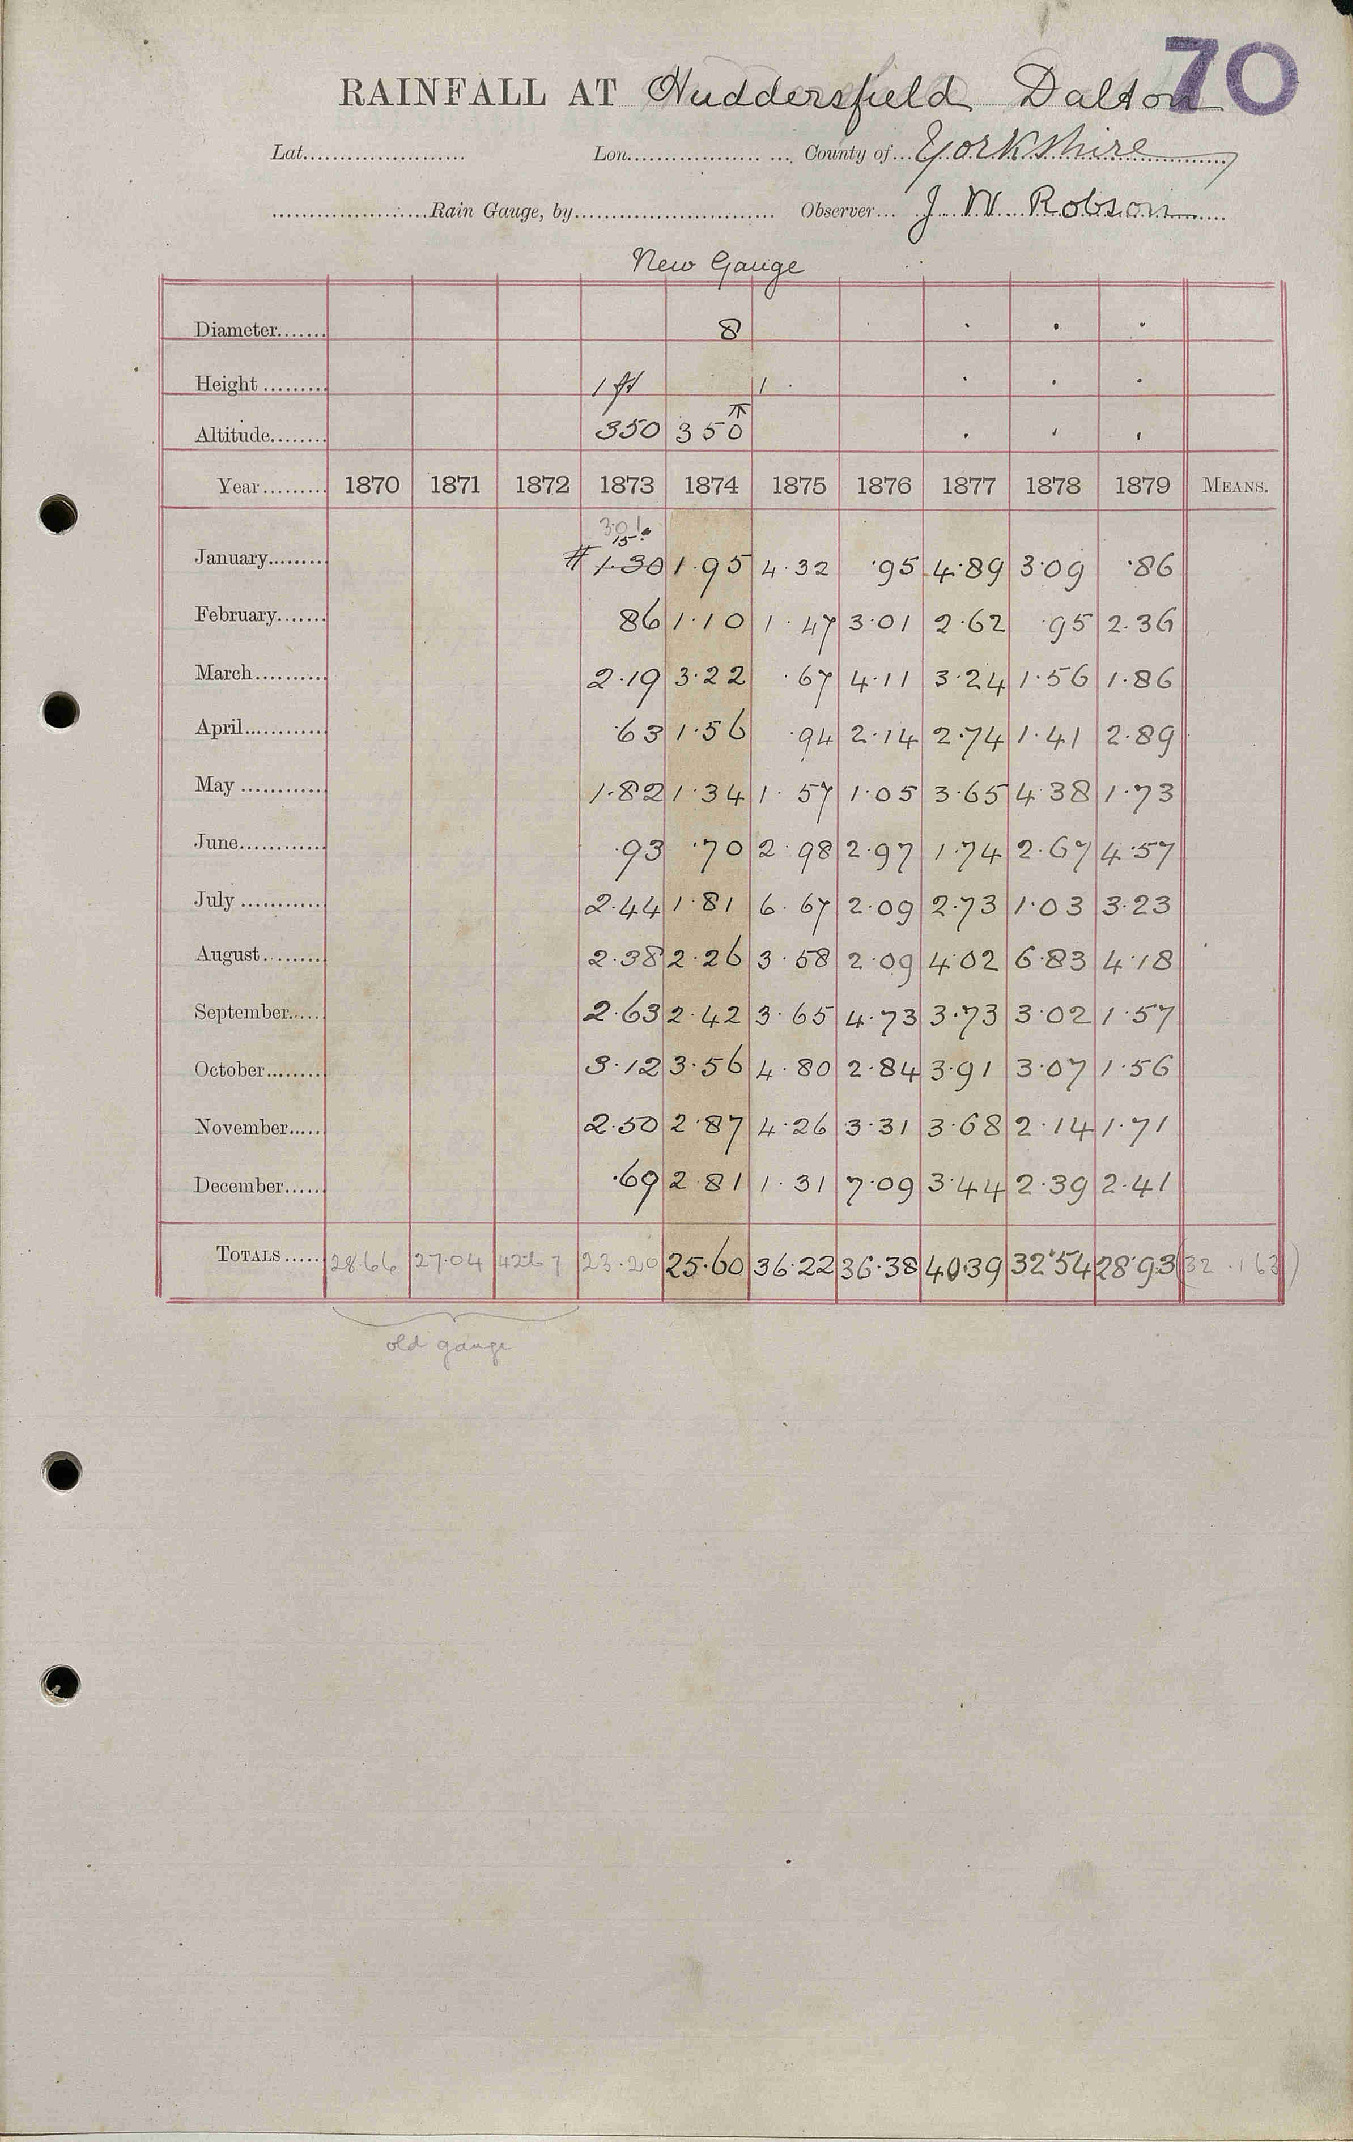 70
RAINFALL AT Huddersfield Dalton
Lat. Lon. County of Yorkshire
Rain Gauge, by Observer J. W. Robson
New Gauge
Diameter 8
Height 1 ft 1
Altitude 350 350
Year 1870 1871 1872 1873 1874 1875 1876 1877 1878 1879 MEANS.
January # 1.30 1.95 4.32 .95 4.89 3.09 .86
February 86 1.10 1.47 3.01 2.62 .95 2.36
March 2.19 3.22 .67 4.11 3.24 1.56 1.86
April .63 1.56 .94 2.14 2.74 1.41 2.89
May 1.82 1.34 1.57 1.05 3.65 4.38 1.73
June .93 .70 2.98 2.97 1.74 2.67 4.57
July 2.44 1.81 6.67 2.09 2.73 1.03 3.23
August 2.38 2.26 3.58 2.09 4.02 6.83 4.18
September 2.63 2.42 3.65 4.73 3.73 3.02 1.57
October 3.12 3.56 4.80 2.84 3.91 3.07 1.56
November 2.50 2.87 4.26 3.31 3.68 2.14 1.71
December .69 2.81 1.31 7.09 3.44 2.39 2.41
TOTALS 28.66 27.04 23.20 25.60 36.22 36.38 40.39 32.54 28.93 (32.163)
old gauge